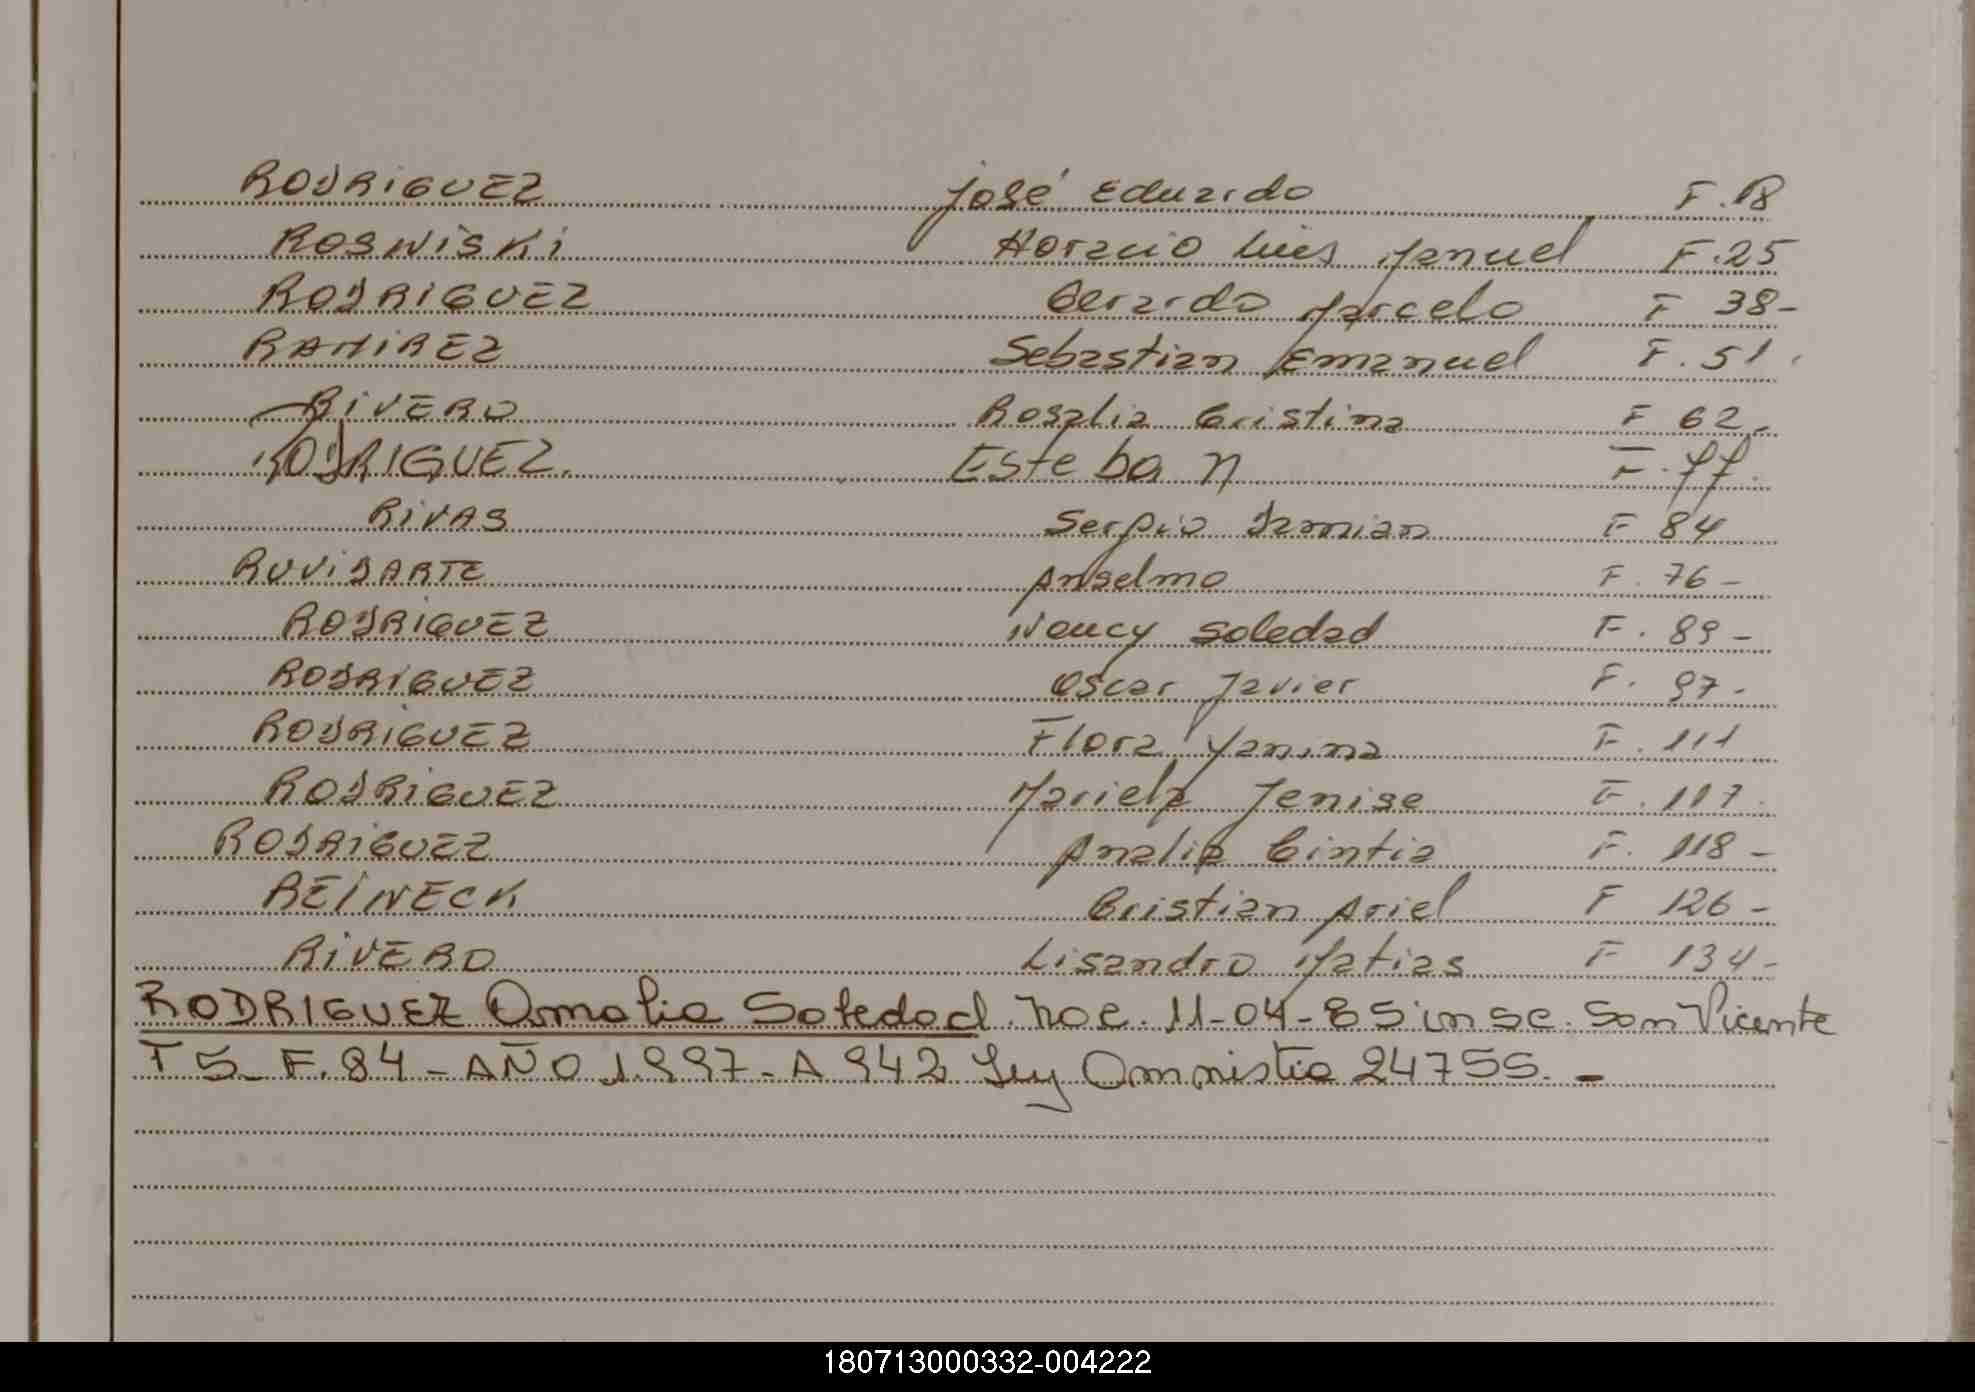 RODRIGUEZ José Eduardo F. 18
ROSNISKI Horacio Luis Manuel F. 25
RODRIGUEZ Gerardo Marcelo F 38-
RAMIREZ Sebastian Emanuel F. 51.
RIVERO Rosalia Cristina F 62.
RODRIGUEZ. Esteban F. 77.
RIVAS Sergio Damian F 84
RUVIDARTE Anselmo F. 76-
RODRIGUEZ Nancy Soledad F. 89-
RODRIGUEZ Oscar Javier F. 97-
RODRIGUEZ Flora Yanina F. 111
RODRIGUEZ Mariela Jenise F. 117.
RODRIGUEZ Analia Cintia F. 118-
REINECK Cristian Ariel F 126-
RIVERO Lisandro Matias F 134-
RODRIGUEZ Amalia Soledad. nac. 11-04-85 insc. San Vicente
T 5_ F. 94 - AÑO 1.997- A 942 Ley Amnistia 24755. -
180713000332-004222